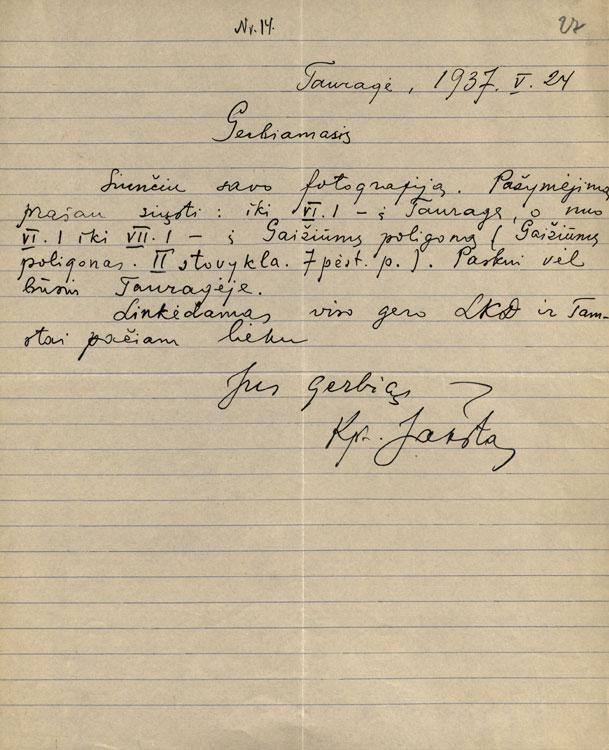 Nr. 14.
27
Tauragė, 1937. V. 24
Gerbiamasis
Siunčiu savo fotografiją. Pažymėjimą
prašau siųsti: iki VI. 1 – į Tauragę, o nuo
VI. 1 iki VII. 1 – į Gaižiūnų poligoną (Gaižiūnų
poligonas. II stovykla. 7 pėst. p.). Paskui vėl
būsiu Tauragėje.
Linkėdamas viso gero LKD ir Tam-
stai pačiam lieku
Jus gerbiąs
Kpt. Jakštas